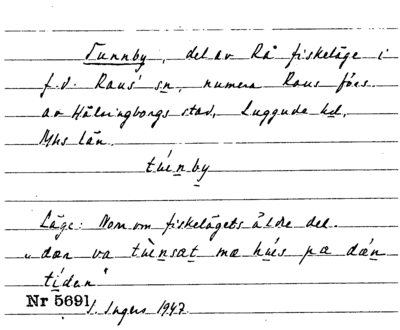 Tunnby, del av Rå fiskeläge i
f.d. Raus' sn, numera Raus förs.
av Hälsingborgs stad, Luggude hd,
Mhs län.
túnby
Läge: Inom fiskelägets äldre del.
"dar va tùnsat mæ hús pa dǽn
tídan"
Nr 5691
I. Ingers 1947.